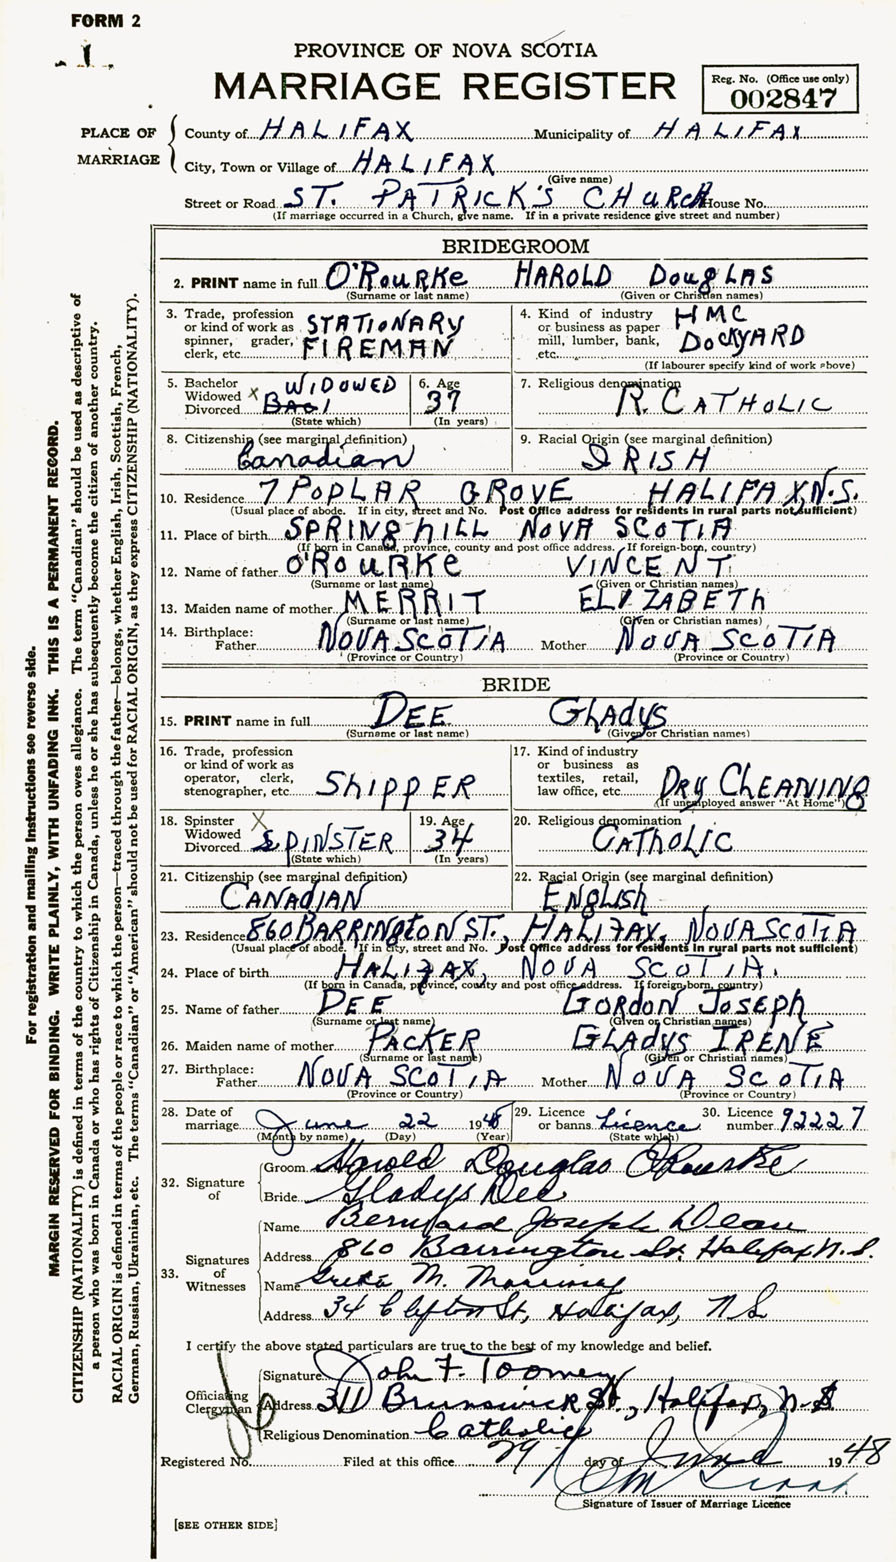 FORM 2
1
PROVINCE OF NOVA SCOTIA
MARRIAGE REGISTER
Reg. No. (Office use only)
002847
PLACE OF MARRIAGE
County of HALIFAX Municipality of HALIFAX
City, Town or Village of HALIFAX
(Give name)
Street or Road ST. PATRICK'S CHURCH House No.
(If marriage occurred in a Church, give name. If in a private residence give street and number)
BRIDEGROOM
2. PRINT name in full O'ROURKE HAROLD DOUGLAS
(Surname or last name) (Given or Christian names)
3. Trade, profession or kind of work as spinner, grader, clerk, etc. STATIONARY FIREMAN
4. Kind of industry or business as paper mill, lumber, bank, etc. HMC DOCKYARD
(If labourer specify kind of work above)
5. Bachelor Widowed Divorced X WIDOWED
(State which)
6. Age 37
(In years)
7. Religious denomination R. CATHOLIC
8. Citizenship (see marginal definition) Canadian
9. Racial Origin (see marginal definition) IRISH
10. Residence 7 POPLAR GROVE HALIFAX, N.S.
(Usual place of abode. If in city, street and No. Post Office address for residents in rural parts not sufficient)
11. Place of birth SPRINGHILL NOVA SCOTIA
(If born in Canada, province, county and post office address. If foreign-born, country)
12. Name of father O'ROURKE VINCENT
(Surname or last name) (Given or Christian names)
13. Maiden name of mother MERRIT ELIZABETH
(Surname or last name) (Given or Christian names)
14. Birthplace: Father NOVA SCOTIA Mother NOVA SCOTIA
(Province or Country) (Province or Country)
BRIDE
15. PRINT name in full DEE GLADYS
(Surname or last name) (Given or Christian names)
16. Trade, profession or kind of work as operator, clerk, stenographer, etc. SHIPPER
17. Kind of industry or business as textiles, retail, law office, etc. DRY CLEANING
(If unemployed answer "At Home")
18. Spinster Widowed Divorced X SPINSTER
(State which)
19. Age 34
(In years)
20. Religious denomination CATHOLIC
21. Citizenship (see marginal definition) CANADIAN
22. Racial Origin (see marginal definition) ENGLISH
23. Residence 860 BARRINGTON ST., HALIFAX, NOVA SCOTIA
(Usual place of abode. If in city, street and No. Post Office address for residents in rural parts not sufficient)
24. Place of birth HALIFAX, NOVA SCOTIA.
(If born in Canada, province, county and post office address. If foreign-born, country)
25. Name of father DEE GORDON JOSEPH
(Surname or last name) (Given or Christian names)
26. Maiden name of mother PACKER GLADYS IRENE
(Surname or last name) (Given or Christian names)
27. Birthplace: Father NOVA SCOTIA Mother NOVA SCOTIA
(Province or Country) (Province or Country)
28. Date of marriage June 22 1948
(Month by name) (Day) (Year)
29. Licence or banns Licence
(State which)
30. Licence number 92227
32. Signature of
Groom Harold Douglas O'Rourke
Bride Gladys Dee
33. Signatures of Witnesses
Name Bernard Joseph Dean
Address 860 Barrington St. Halifax N.S.
Name M.
Address 34 Clifton St, Halifax, NS
I certify the above stated particulars are true to the best of my knowledge and belief.
Officiating Clergyman
Signature John F. Toomey
Address 311 Brunswick St., Halifax, N.S
Religious Denomination Catholic
Registered No. Filed at this office 29 day of June 1948
Signature of Issuer of Marriage Licence
[SEE OTHER SIDE]
For registration and mailing instructions see reverse side.
MARGIN RESERVED FOR BINDING. WRITE PLAINLY, WITH UNFADING INK. THIS IS A PERMANENT RECORD.
CITIZENSHIP (NATIONALITY) is defined in terms of the country to which the person owes allegiance. The term "Canadian" should be used as descriptive of
a person who was born in Canada or who has rights of Citizenship in Canada, unless he or she has subsequently become the citizen of another country.
RACIAL ORIGIN is defined in terms of the people or race to which the person—traced through the father—belongs, whether English, Irish, Scottish, French,
German, Russian, Ukrainian, etc. The terms "Canadian" or "American" should not be used for RACIAL ORIGIN, as they express CITIZENSHIP (NATIONALITY).